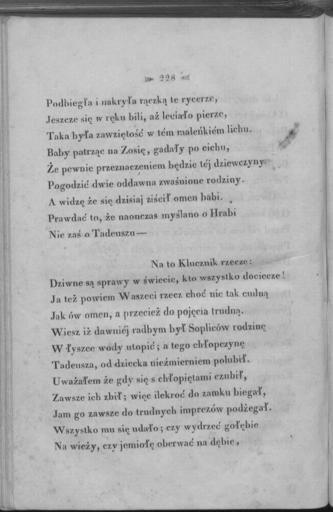 228
Podbiegła i nakryła rączką te rycerze,
Jeszcze się w ręku bili, aż leciało pierze,
Taka była zawziętość w tém maleńkiém lichu.
Baby patrząc na Zosię, gadały po cichu,
Że pewnie przeznaczeniem będzie téj dziewczyny
Pogodzić dwie oddawna zwaśnione rodziny.
A widzę że się dzisiaj ziścił omen babi.
Prawdać to, że naonczas myślano o Hrabi
Nie zaś o Tadeuszu —
Na to Klucznik rzecze:
Dziwne są sprawy w świecie, kto wszystko dociecze!
Ja też powiem Waszeci rzecz choć nie tak cudną
Jak ów omen, a przecież do pojęcia trudną.
Wiesz iż dawniéj radbym był Sopliców rodzinę
W łyszce wody utopić; a tego chłopczynę
Tadeusza, od dziecka niezmiernie polubił.
Uważałem że gdy się s chłopiętami czubił,
Zawsze ich zbił; więc ilekroć do zamku biegał,
Jam go zawsze do trudnych imprezów podżegał.
Wszystko mu się udało; czy wydrzeć gołębie
Na wieży, czy jemiołę oberwać na dębie,